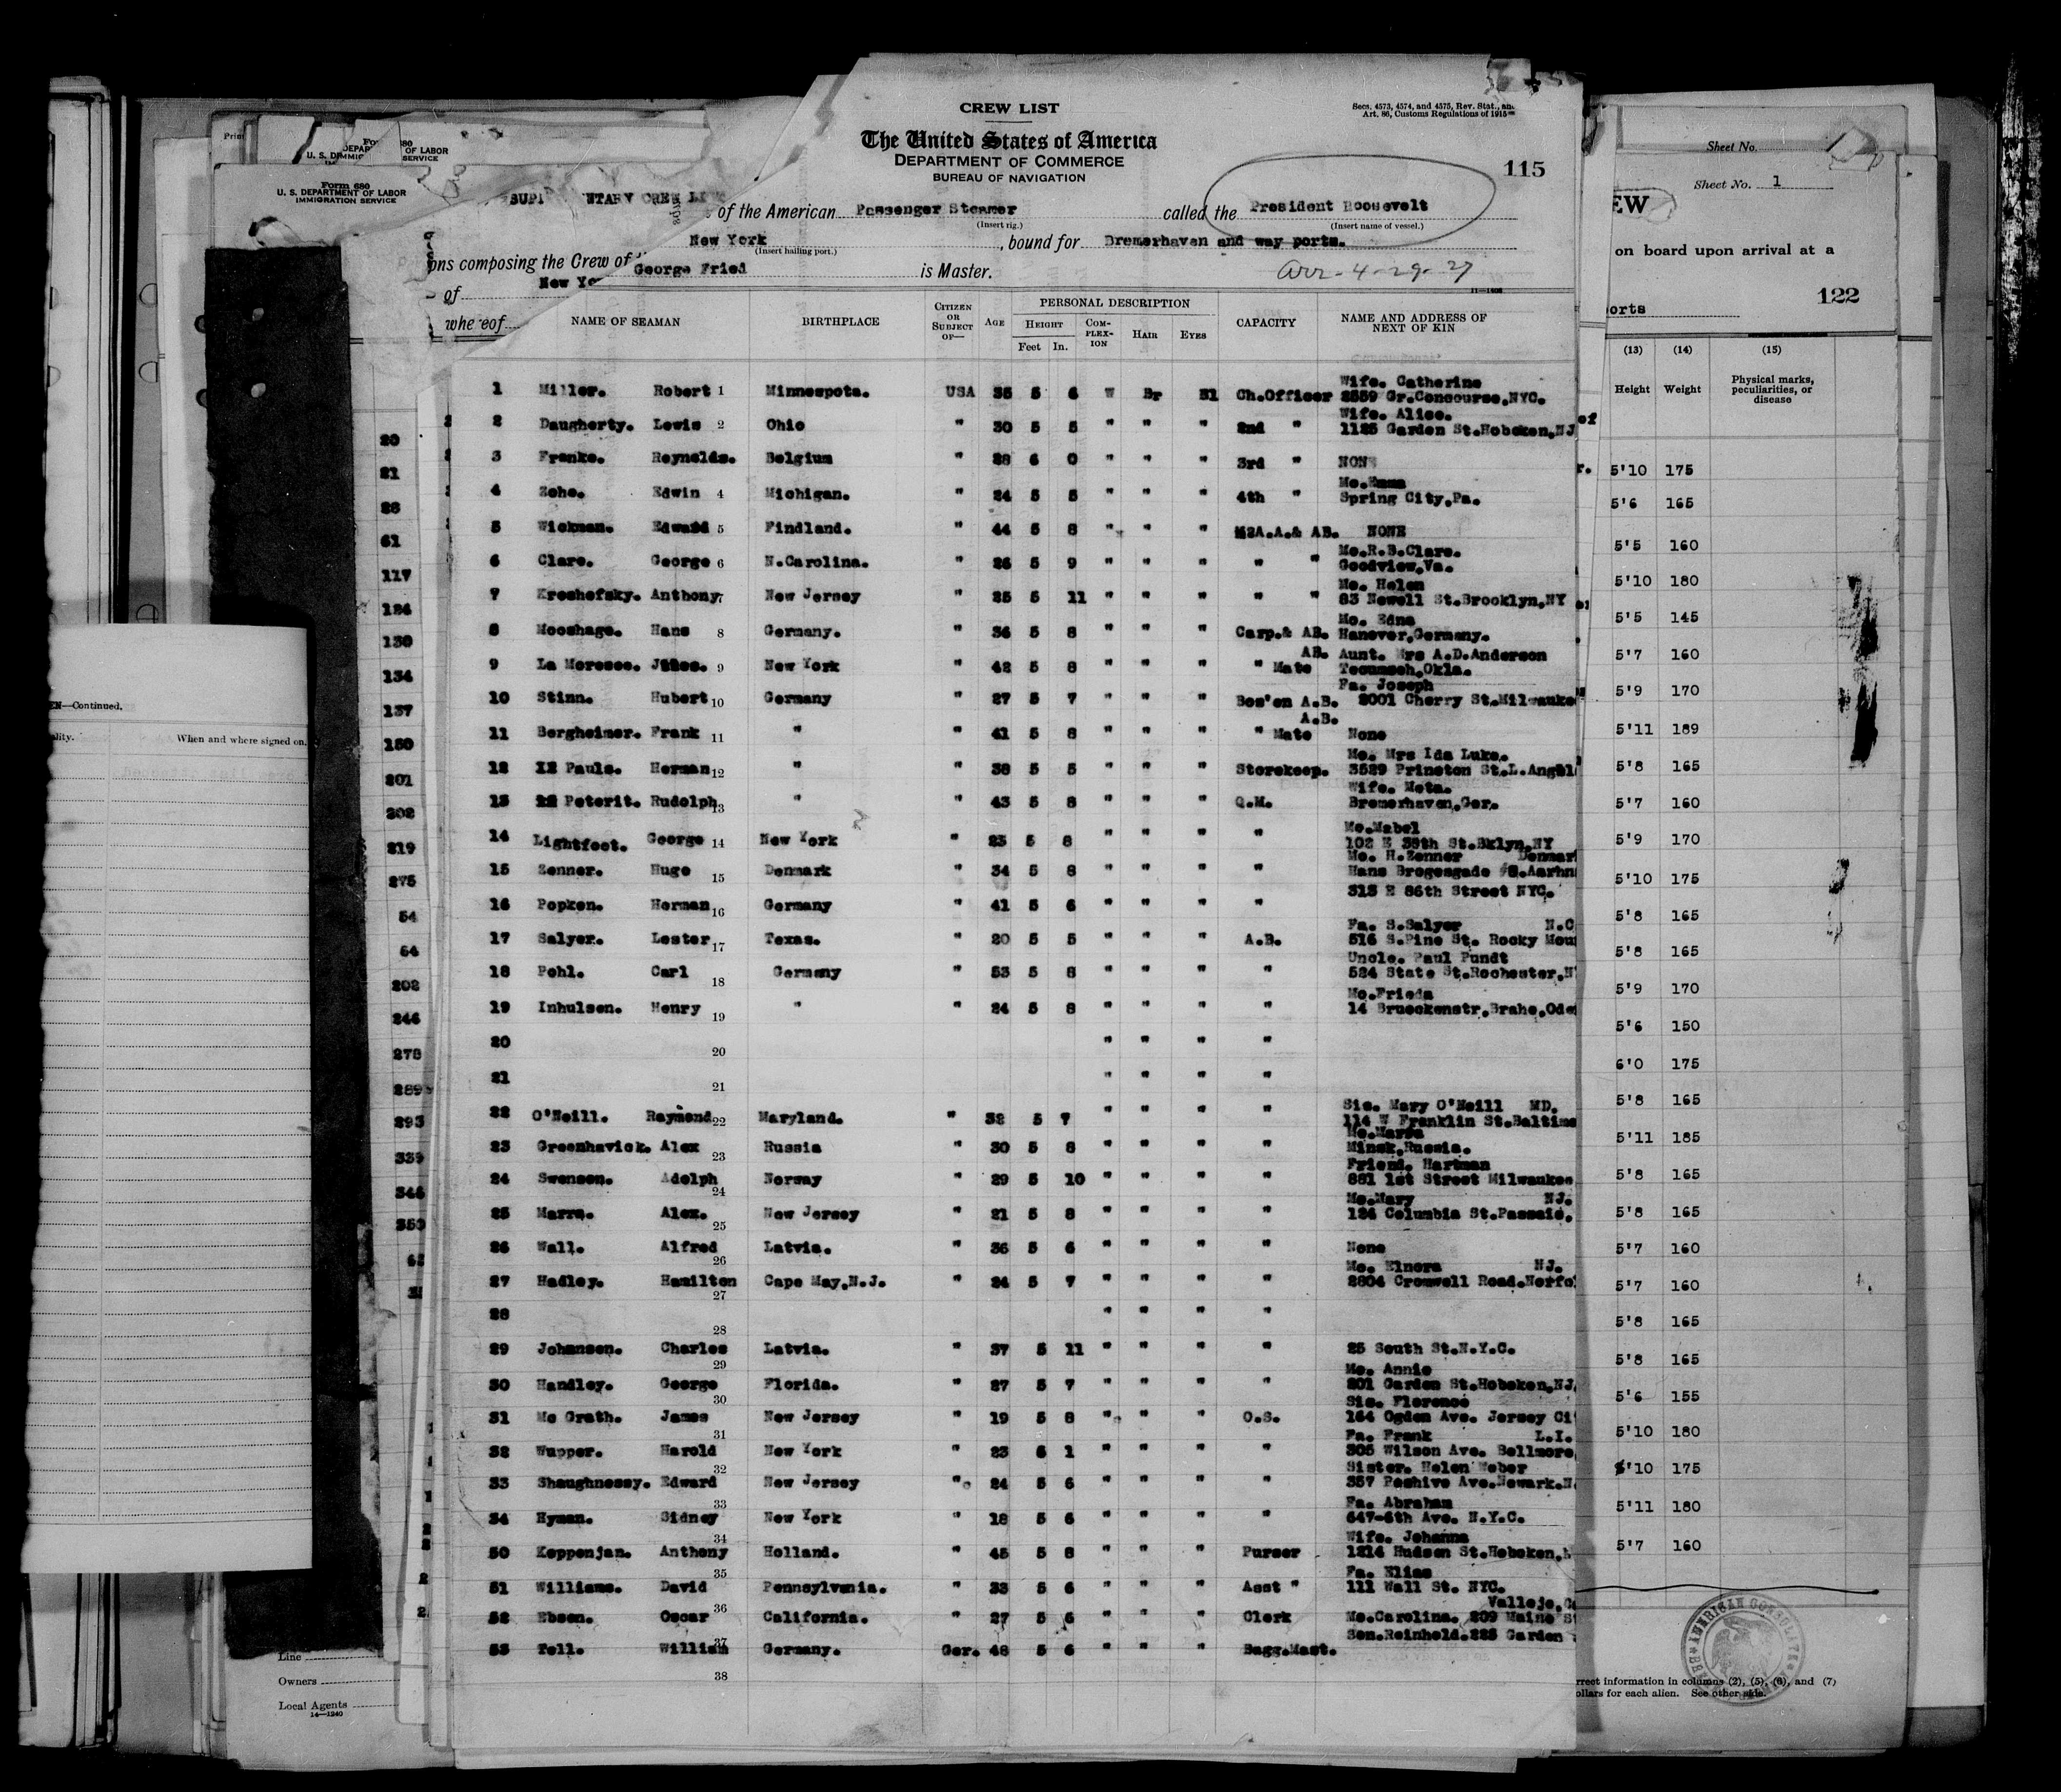 CREW LIST
Secs. 4573, 4574, and 4575, Rev. Stat., and
Art. 86, Customs Regulations of 1915
The United States of America
DEPARTMENT OF COMMERCE
BUREAU OF NAVIGATION
115
of the American Passenger Steamer called the President Roosevelt
(Insert rig.) (Insert name of vessel.)
New York, bound for Bremerhaven and way ports.
(Insert hailing port.)
ons composing the Crew of George Fried is Master. arr - 4-29-27
of New Yo
whereof
NAME OF SEAMAN BIRTHPLACE CITIZEN OR SUBJECT OF— AGE PERSONAL DESCRIPTION CAPACITY NAME AND ADDRESS OF NEXT OF KIN
HEIGHT COMPLEXION HAIR EYES
Feet In.
Wife. Catherine
1 Miller. Robert 1 Minnespota. USA 35 5 6 W Br Bl Ch.Officer 2559 Gr.Concourse,NYC.
Wife. Alice.
2 Daugherty. Lewis 2 Ohio " 30 5 5 " " " 2nd " 1125 Garden St.Hoboken,NJ
3 Franke. Reynolds. Belgium " 28 6 0 " " " 3rd " NONE
Mo.Emma
4 Zehe. Edwin 4 Michigan. " 24 5 5 " " " 4th " Spring City,Pa.
5 Wickman. Edward 5 Findland. " 44 5 8 " " " A.A.& AB. NONE
Mo.R.B.Clare.
6 Clare. George 6 N.Carolina. " 26 5 9 " " " " " Goodview,Va.
Mo. Helen
7 Kroshefsky. Anthony 7 New Jersey " 25 5 11 " " " " " 83 Newell St.Brooklyn,NY
Mo. Edna
8 Mooshage. Hans 8 Germany. " 36 5 8 " " " Carp.& AB. Hanover,Germany.
AB. Aunt. Mrs A.D.Anderson
9 La Moresee. 9 New York " 42 5 8 " " " " Mate Tecumseh,Okla.
Fa. Joseph
10 Stinn. Hubert 10 Germany " 27 5 7 " " " Bos'en A.B. 2001 Cherry St.Milwauke
A.B.
11 Bergheimer. Frank 11 " " 41 5 8 " " " " Mate None
Mo. Mrs Ida Luke.
12 Pauls. Herman 12 " " 38 5 5 " " " Storekeep. 3529 Princton St.L.Angel
Wife. Meta.
13 Peterit. Rudolph 13 " " 43 5 8 " " " Q.M. Bremerhaven,Ger.
Mo.Mabel
14 Lightfoot. George 14 New York " 23 5 8 " " " " 102 E 38th St.Bklyn,NY
Mo. H.Zenner Denmar
15 Zenner. Hugo 15 Denmark " 34 5 8 " " " " Hans Brogesgade
16 Popken. Herman 16 Germany " 41 5 6 " " " " 313 E 86th Street NYC.
Fa. S.Salyer N.C
17 Salyer. Lester 17 Texas. " 20 5 5 " " " A.B. 516 S.Pine St. Rocky Mou
Uncle. Paul Pundt
18 Pohl. Carl 18 Germany " 53 5 8 " " " " 524 State St.Rochester,N
Mo.Frieda
19 Inhulsen. Henry 19 " " 24 5 8 " " " " 14 Brueckenstr,Brahe,Ode
20 20 " " " "
21 21 " " " "
Sis. Mary O'Neill MD.
22 O'Neill. Raymond 22 Maryland. " 32 5 7 " " " " 114 W Franklin St.Baltimo
23 Greenhavick. Alex 23 Russia " 30 5 8 " " " " Minsk,Russia.
Friend. Hartman
24 Swensen. Adolph 24 Norway " 29 5 10 " " " " 881 1st Street Milwaukee
Mo.Mary NJ.
25 Marra. Alex. 25 New Jersey " 21 5 8 " " " " 124 Columbia St.Passaic.
26 Wall. Alfred 26 Latvia. " 36 5 6 " " " " None
Mo. Elnora NJ.
27 Hadley. Hamilton 27 Cape May,N.J. " 24 5 7 " " " " 2804 Cromwell Road.Norfo
28 28 " " " "
29 Johansen. Charles 29 Latvia. " 37 5 11 " " " " 25 South St.N.Y.C.
Mo. Annie
30 Handley. George 30 Florida. " 27 5 7 " " " " 201 Garden St.Hoboken,NJ
Sis. Florence
31 Mc Grath. James 31 New Jersey " 19 5 8 " " " O.S. 164 Ogden Ave. Jersey Ci
Fa. Frank L.I.
32 Wupper. Harold 32 New York " 23 6 1 " " " " 305 Wilson Ave. Bellmore,
Sister. Helen Weber
33 Shaughnessy. Edward 33 New Jersey " 24 5 6 " " " " 357 Peshive Ave.Newark.N
Fa. Abraham
34 Hyman. Sidney 34 New York " 18 5 6 " " " " 647-6th Ave. N.Y.C.
Wife. Johanna
50 Koppenjan. Anthony 35 Holland. " 45 5 8 " " " Purser 1214 Hudson St.Hoboken,
Fa. Elias
51 Williams. David 36 Pennsylvania. " 33 5 6 " " " Asst " 111 Wall St. NYC.
Vallejo,
52 Ebsen. Oscar California. " 27 5 6 " " " Clerk Mo.Carolina. 209 Maine S
Son.Reinhold.225 Garden
53 Tell. William 37 Germany. Ger. 48 5 6 " " " Bagg.Mast.
38
Form 680
U. S. DEPARTMENT OF LABOR
IMMIGRATION SERVICE
20
21
28
61
117
124
130
134
137
150
201
202
219
275
54
64
202
246
278
289
293
339
346
350
EN—Continued.
ality. When and where signed on.
Line
Owners
Local Agents
14—1240
Sheet No.
Sheet No. 1
EW
on board upon arrival at a
122
orts
(13) (14) (15)
Height Weight Physical marks, peculiarities, or disease
5'10 175
5'6 165
5'5 160
5'10 180
5'5 145
5'7 160
5'9 170
5'11 189
5'8 165
5'7 160
5'9 170
5'10 175
5'8 165
5'8 165
5'9 170
5'6 150
6'0 175
5'8 165
5'11 185
5'8 165
5'8 165
5'7 160
5'7 160
5'8 165
5'8 165
5'6 155
5'10 180
5'10 175
5'11 180
5'7 160
AMERICAN CONSULATE
rrect information in columns (2), (5), (6), and (7)
ollars for each alien. See other side.